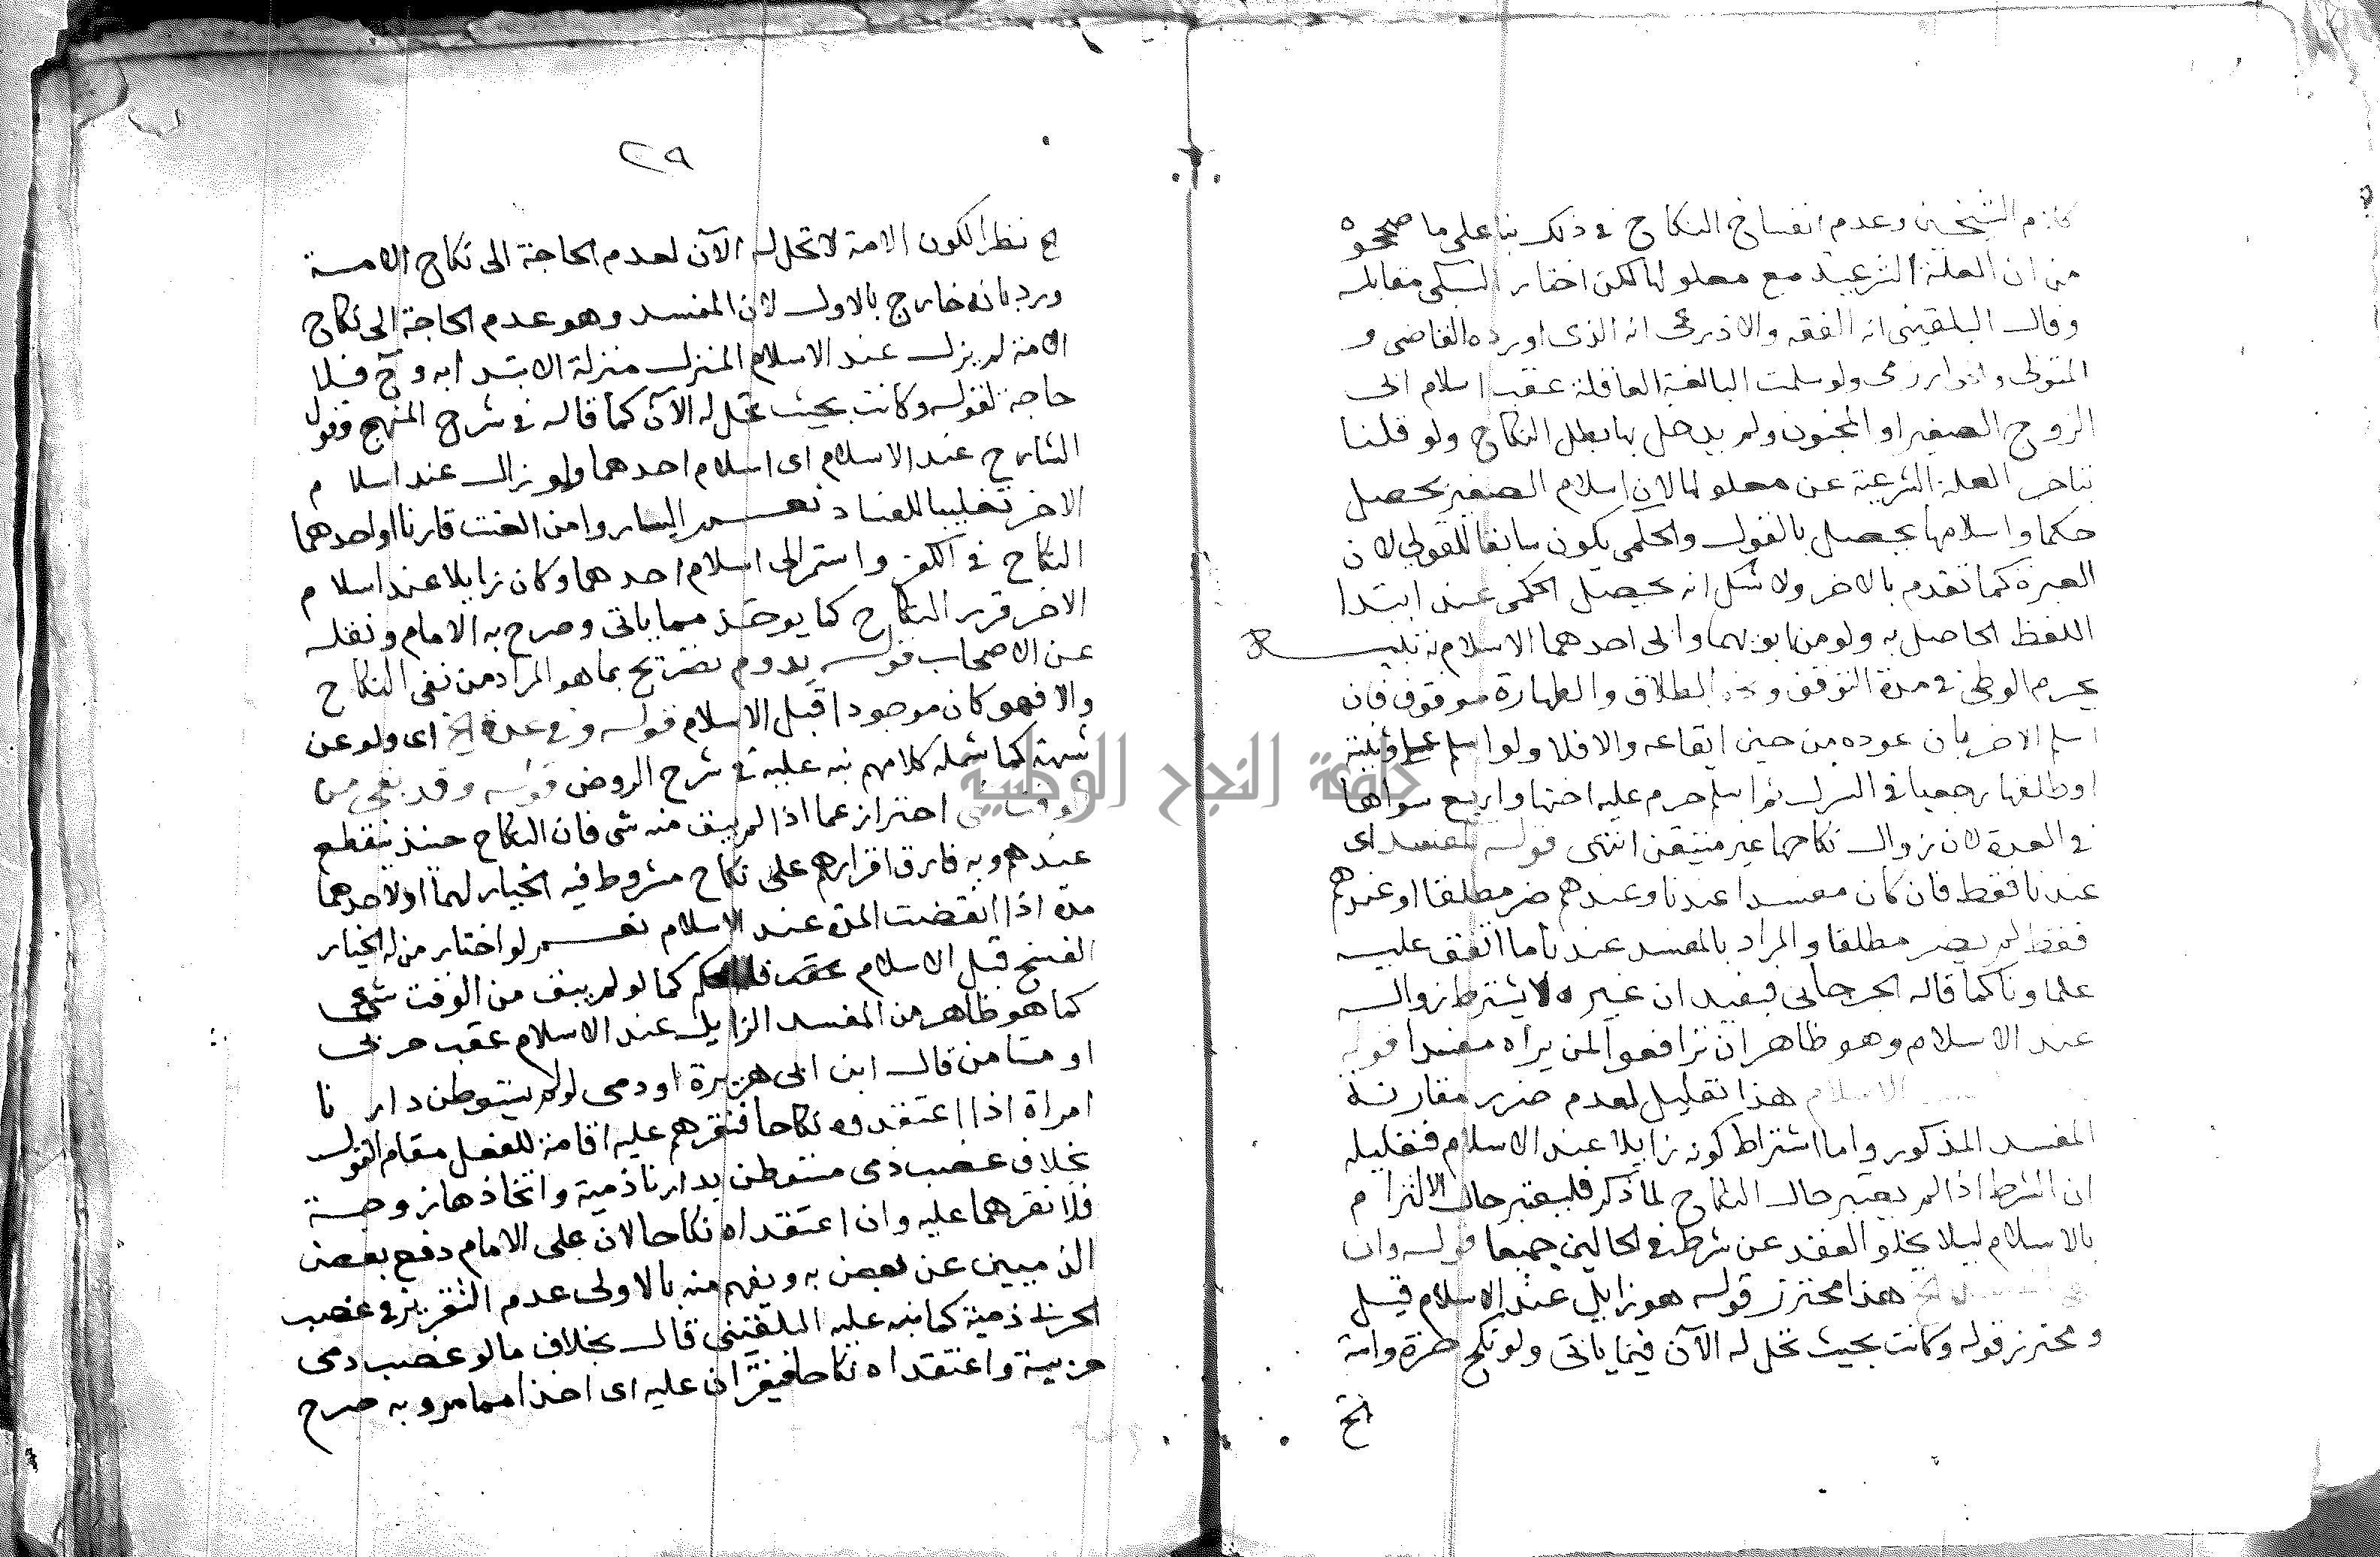 كلام الشيخين وعدم انفساخ النكاح في ذلك بناء على ما صححوه
من ان العلة الشرعية مع معلولها لكن اختار السبكي مقابله
وقال البلقيني انه الفقه والاذرعي انه الذي اورده القاضي و
المتولي والخوارزمي ولو سلمت البالغة العاقلة عقب اسلام ابي
الزوج الصغير او المجنون ولم يدخل بها بطل النكاح ولو قلنا
بتاخر العلة الشرعية عن معلولها لان اسلام الصغير يحصل
حكما واسلامها يحصل بالقول والحكمي يكون سابقا للقولي لان
العبرة كما تقدم بالاخر ولا شك انه يحصل الحكمي عند ابتدا
اللفظ الحاصل به ولو من ابويهما والى احدهما الاسلام تنبيه
يحرم الوطئ في مدة التوقف ونحو الطلاق والظهار موقوف فان
اسلم الاخر بان عوده من حين ايقاعه والا فلا ولو اسلم على وثنية
او طلقها رجعيا في الشرك ثم اسلم حرم عليه اختها واربع سواها
في العدة لان زوال نكاحها غير متيقن انتهى قوله لمفسد اى
عندنا فقط فان كان مفسدا عندنا وعندهم ضر مطلقا او عندهم
فقط لم يضر مطلقا والمراد بالمفسد عندنا ما اتفق عليه
علماونا كما قاله الجرجاني فيفيد ان غيره لا يشترط زواله
عند الاسلام وهو ظاهر ان ترافعوا لمن يراه مفسدا قوله
الاسلام هذا تعليل لعدم ضرر مقارنة
المفسد المذكور واما اشتراط كونه زايلا عند الاسلام فتعليله
ان الشرط اذا لم يعتبر حال النكاح لما ذكر فليعتبر حال الالتزام
بالاسلام ليلا يخلو العقد عن شرطه في الحالين جميعا قوله وان
الخ هذا محترز قوله هو زايل عند الاسلام قيل
ومحترز قوله وكانت بحيث تحل له الآن فيما ياتي ولو نكح حرة وامة
الخ
٢٩
الخ نظرا لكون الامة لا تحل له الآن لعدم الحاجة الى نكاح الامة
ورد بانه خارج بالاول لان المفسد وهو عدم الحاجة الى نكاح
الامة لم يزل عند الاسلام المنزل منزلة الابتداء به وح فلا
حاجة لقوله وكانت بحيث تحل له الآن كما قاله في شرح المنهج وقول
الشارح عند الاسلام اى اسلام احدهما ولو زال عند اسلام
الاخر تغليبا للفساد نعم اليسار وامن العنت قارنا او احدهما
النكاح في الكفر واستمر الى اسلام احدهما وكان زايلا عند اسلام
الاخر قرر النكاح كما يوخذ مما ياتي وصرح به الامام ونقله
عن الاصحاب قوله يدوم تصريح بما هو المراد من نفي النكاح
والا فهو كان موجودا قبل الاسلام قوله وفي عدة الخ اى ولو عن
شبهة كما شمله كلامهم نبه عليه في شرح الروض قوله وقد بقى من
الوقت شى احتراز عما اذا لم يبق منه شى فان النكاح حينئذ ينقطع
عندهم وبه فارق اقرارهم على نكاح مشروط فيه الخيار لهما او لاحدهما
مدة اذا انقضت المدة عند الاسلام نعم لو اختار من له الخيار
الفسخ قبل الاسلام كما لو لم يبق من الوقت شى
كما هو ظاهر من المفسد الزايل عند الاسلام عقب حربي
او مستامن قال ابن ابي هريرة او ذمي لو لم يتوطن دارنا
امراة اذا اعتقدوه نكاحا فنقرهم عليه اقامة للفعل مقام القول
بخلاف غصب ذمي متوطن بدارنا ذمية واتخاذها زوجة
فلا نقرهما عليه وان اعتقداه نكاحا لان على الامام دفع بعض
الذميين عن بعض به ويفهم منه بالاولى عدم التقرير في غصب
الحربي ذمية كما نبه عليه البلقيني قال بخلاف ما لو غصب ذمي
حربية واعتقداه نكاحا فيقران عليه اى اخذا مما مر وبه صرح
جامعة النجاح الوطنية